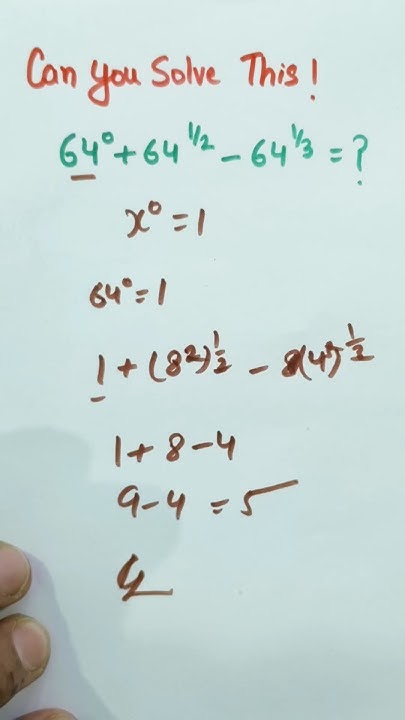 Can You Solve This!
64⁰ + 64^1/2 - 64^1/3 = ?
x⁰ = 1
64⁰ = 1
1 + (8²)^1/2 -
1 + 8 - 4
9 - 4 = 5